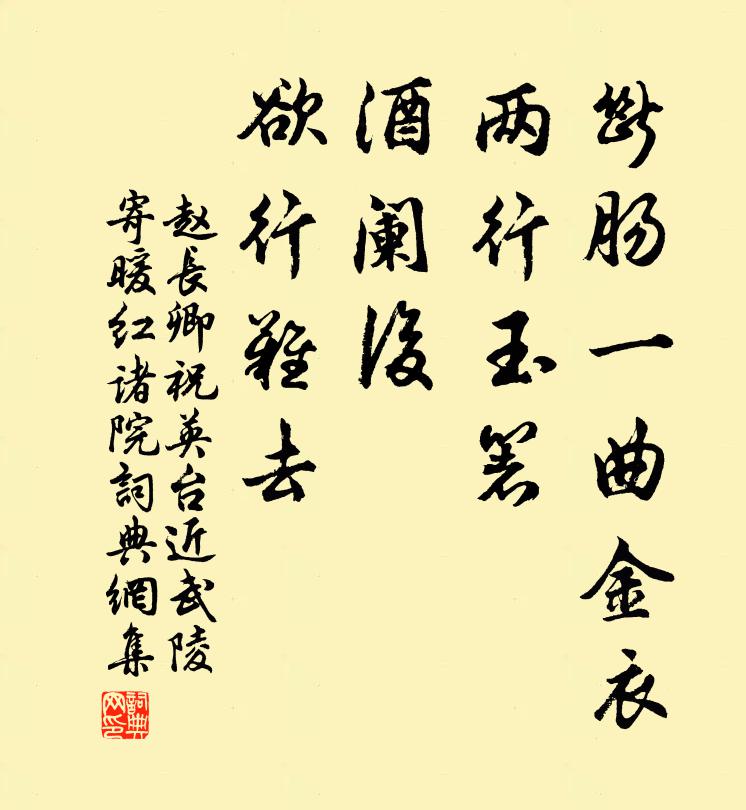 斷肠一曲金衣
两行玉箸
酒阑後
欲行難去
赵長卿祝英台近武陵
寄暖红诸院詞典網集
詞典
网印